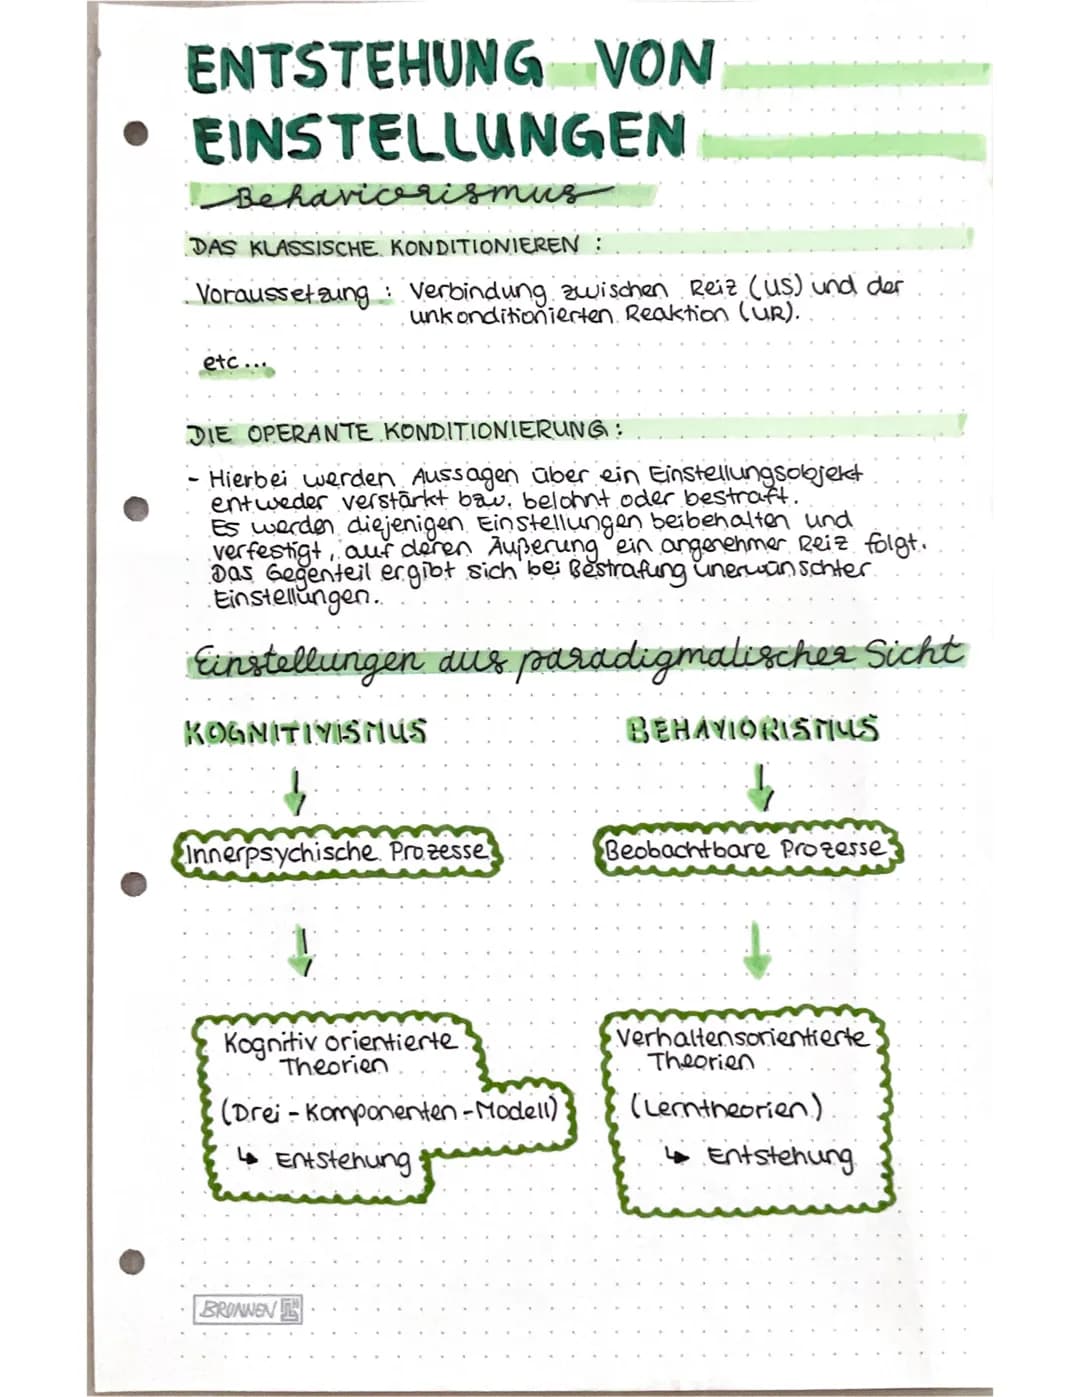 ENTSTEHUNG VON
EINSTELLUNGEN
Behaviorismus
DAS KLASSISCHE KONDITIONIEREN :
Voraussetzung : Verbindung zwischen Reiz (US) und der
unkonditionierten Reaktion (UR).
etc...
DIE OPERANTE KONDITIONIERUNG :
- Hierbei werden Aussagen über ein Einstellungsobjekt
entweder verstärkt bzw. belohnt oder bestraft.
Es werden diejenigen Einstellungen beibehalten und
verfestigt, auf deren Äußerung ein angenehmer Reiz folgt.
Das Gegenteil ergibt sich bei Bestrafung unerwünschter
Einstellungen.
Einstellungen aus paradigmatischer Sicht
KOGNITIVISMUS BEHAVIORISMUS
↓ ↓
Innerpsychische Prozesse Beobachtbare Prozesse
↓ ↓
Kognitiv orientierte
Theorien
(Drei-Komponenten-Modell)
↳ Entstehung
Verhaltensorientierte
Theorien
(Lerntheorien)
↳ Entstehung
BRUNNEN